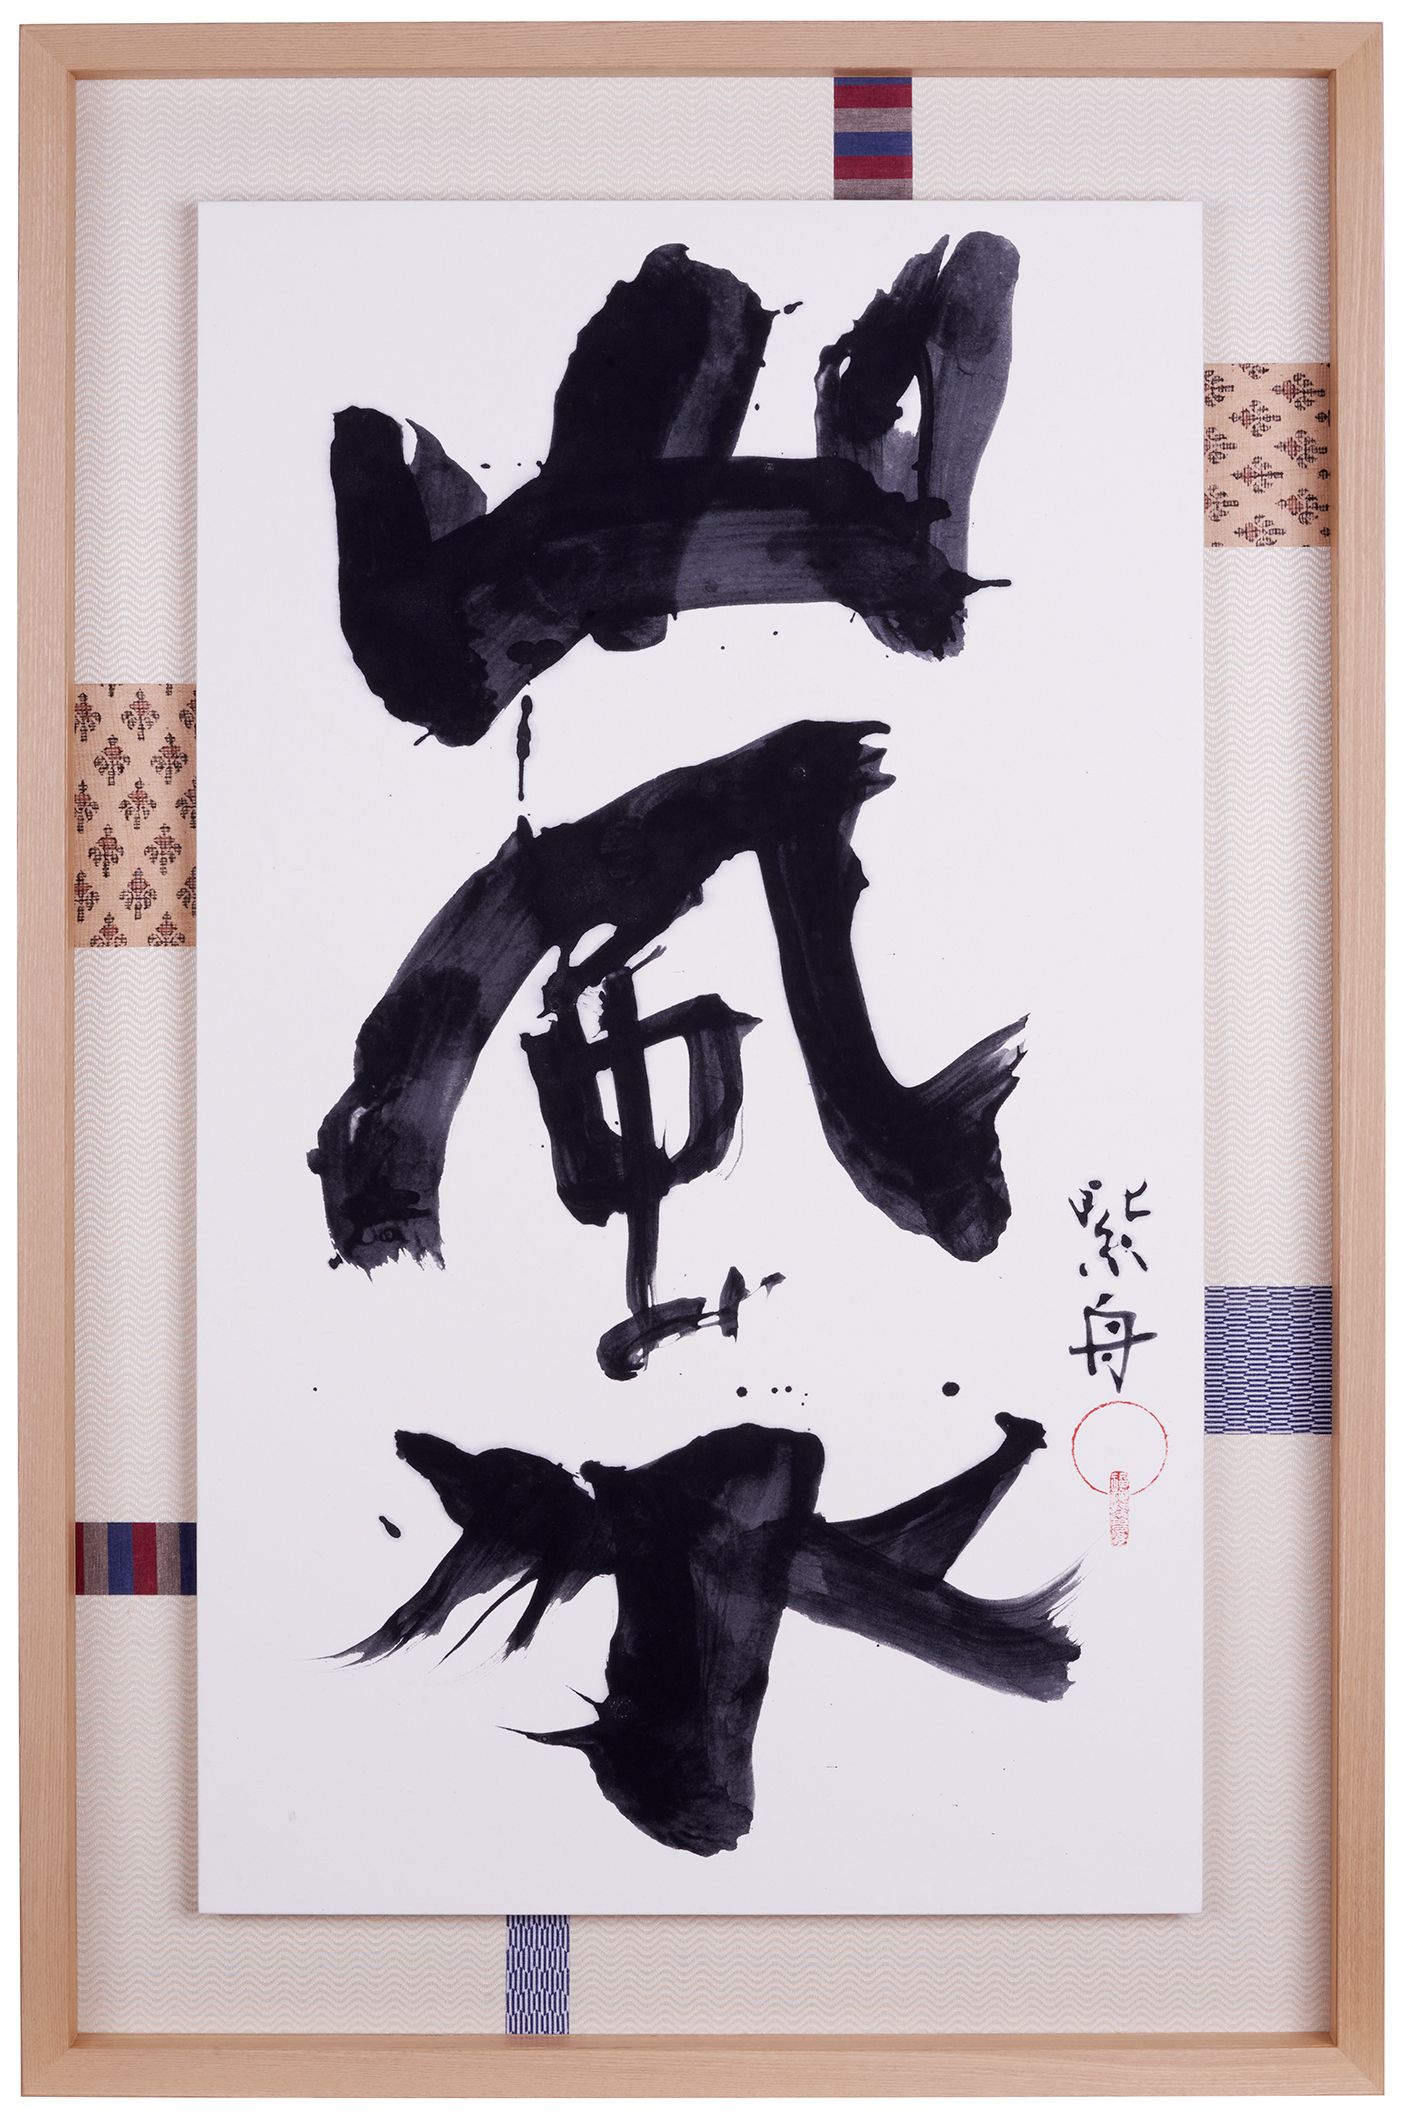 山風水
紫舟